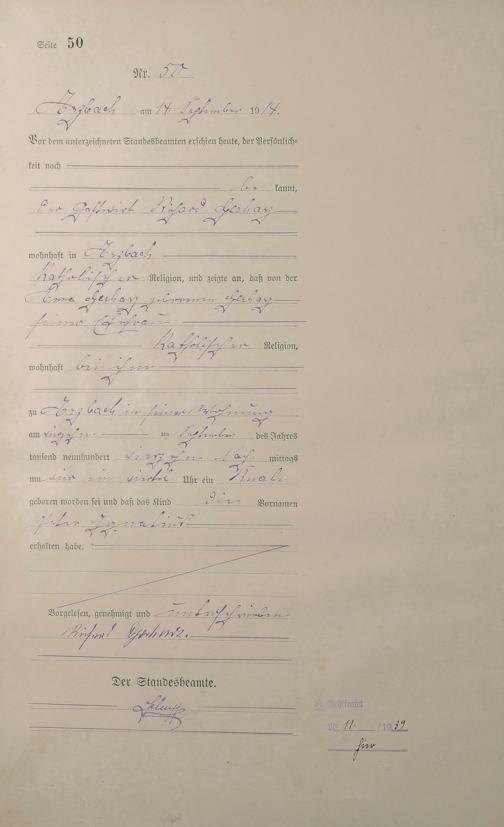 Seite 50
Nr. 50
Arzbach am 14 September 1914.
Vor dem unterzeichneten Standesbeamten erschien heute, der Persönlich-
keit nach
be kannt,
der Gastwirt Richard Gerharz
wohnhaft in Arzbach
katholischer Religion, und zeigte an, daß von der
Anna Gerharz geborenen Gerharz
seiner Ehefrau
katholischer Religion,
wohnhaft bei ihm
zu Arzbach in seiner Wohnung
am September des Jahres
tausend neunhundert vierzehn Nach mittags
um vier ein viertel Uhr ein Knabe
geboren worden sei und daß das Kind die Vornamen
Peter Ignatius
erhalten habe.
Vorgelesen, genehmigt und unterschrieben
Richard Gerharz.
Der Standesbeamte.
Nr. 11 /1939
hier